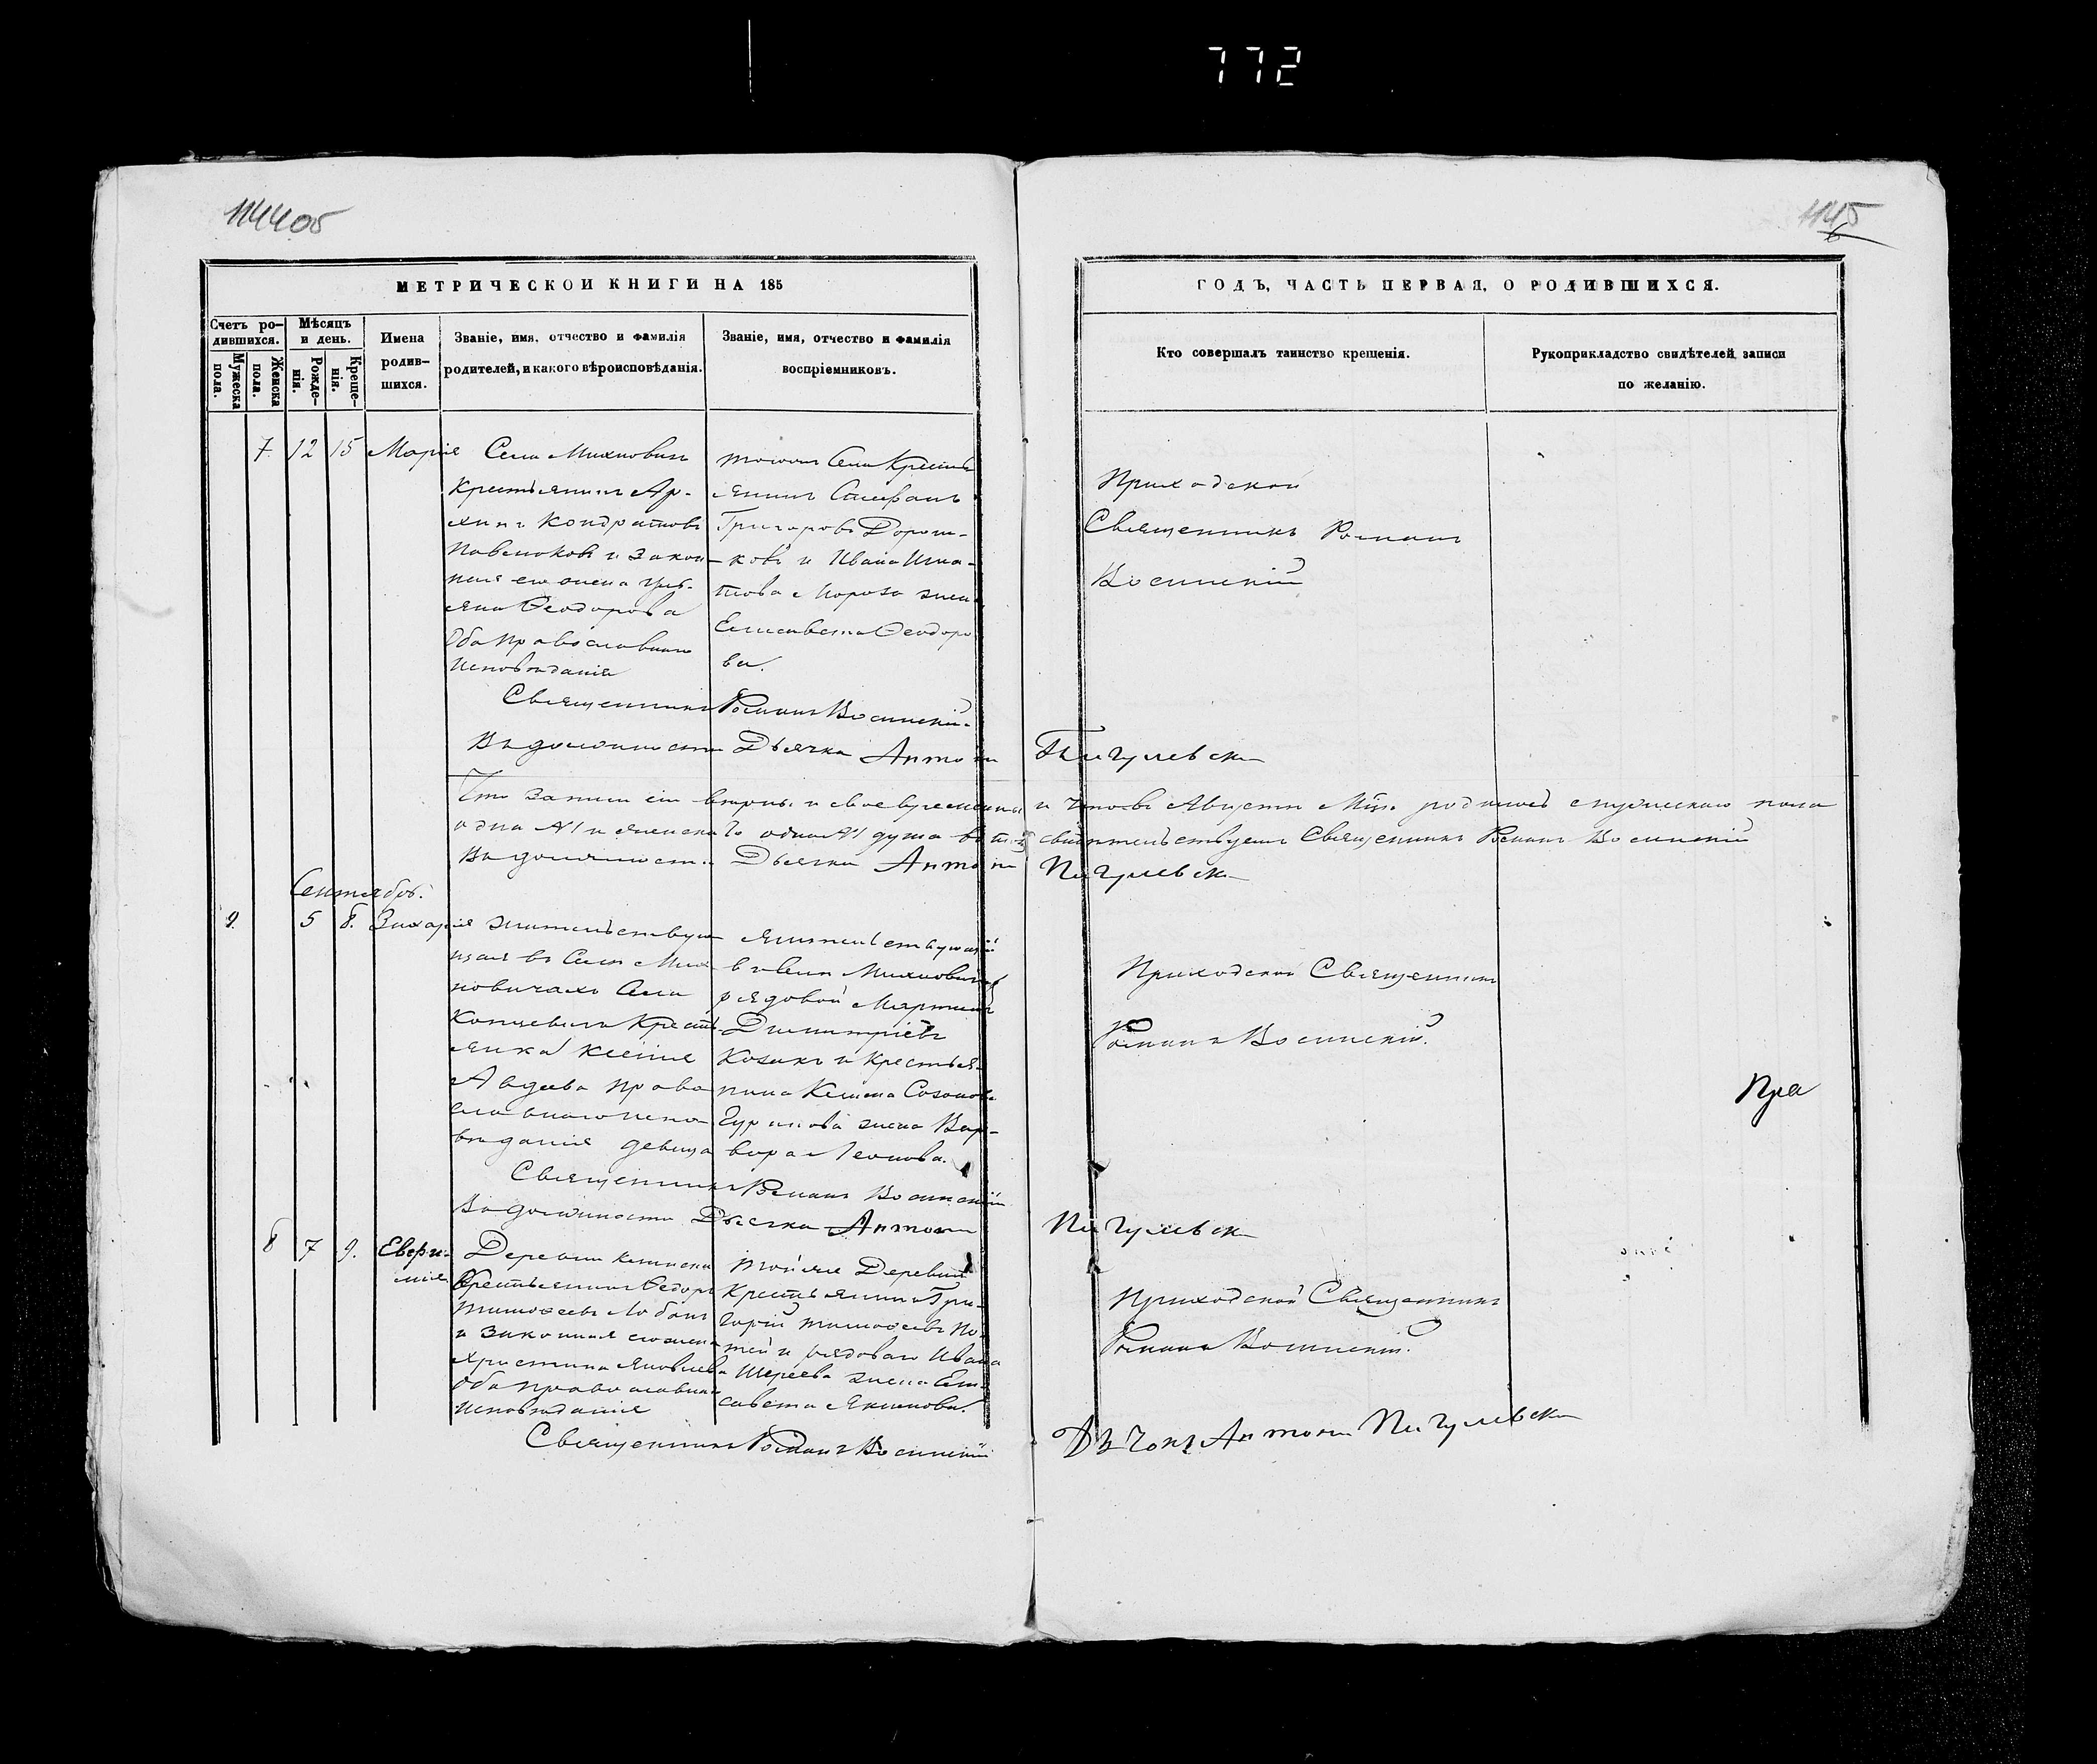 772
1144об
1145
6
МЕТРИЧЕСКОЙ КНИГИ НА 185
ГОДЪ, ЧАСТЬ ПЕРВАЯ, О РОДИВШИХСЯ.
Счетъ ро-
дившихся.
Мужеска
пола.
Женска
пола.
Мѣсяцъ
и день.
Рожде-
нія.
Креще-
нія.
Имена
родив-
шихся.
Званіе, имя, отчество и фамилія
родителей, и какого вѣроисповѣданія.
Званіе, имя, отчество и фамилія
воспріемниковъ.
Кто совершалъ таинство крещенія.
Рукоприкладство свидѣтелей записи
по желанію.
7. 12 15 Марія
Села Михновичъ
Крестьянинъ Ар-
хипъ Кондратовъ
и закон-
ная его жена Улья-
яна Ѳеодорова
Оба Православнаго
Исповѣданія
тогожъ Села Кресть-
янинъ Стефанъ
Григоровъ
и Ивана Игна-
това Мороза жена
Елисавета Ѳеодоро
ва.
Приходской
Священникъ Романъ
Священникъ Романъ
Въ должности Дьячка Антонъ Пигулевск
Что записи сіи вѣрны и своевременны и что въ Августѣ Мцѣ родилось мужескаго пола
одна №1 и женскаго одна №1 душа въ томъ свидѣтельствуемъ Священникъ Романъ
Въ должности Дьячка Антонъ Пигулевск
Сентябрь.
9. 5 8. Захарія
жительствую-
щая въ Селѣ Мих-
новичахъ Села
Кресть-
янка Ксенія
Авдѣева право-
славнаго испо-
вѣданія девица
жительствующій
въ Селѣ Михновичах
рядовой Мартинъ
Димитріевъ
Козакъ и Крестья-
нина
жена Вар-
вара Леонова.
Приходской Священникъ
Романъ
Пра
Священникъ Романъ
Въ должности Дьячка Антонъ Пигулевск
8 7 9. Евфи-
мія
Деревни
Крестьянинъ Ѳедоръ
Тимоѳеевъ Лобанъ
и законная его жена
Христина Яковлева
Оба православнаго
Исповѣданія
той же Деревни
Крестьянинъ Гри-
горій Тимоѳеевъ
и рядоваго Ивана
жена Ели-
савета Якимова.
Приходской Священникъ
Романъ
Священникъ Романъ
Дьячокъ Антонъ Пигулевск